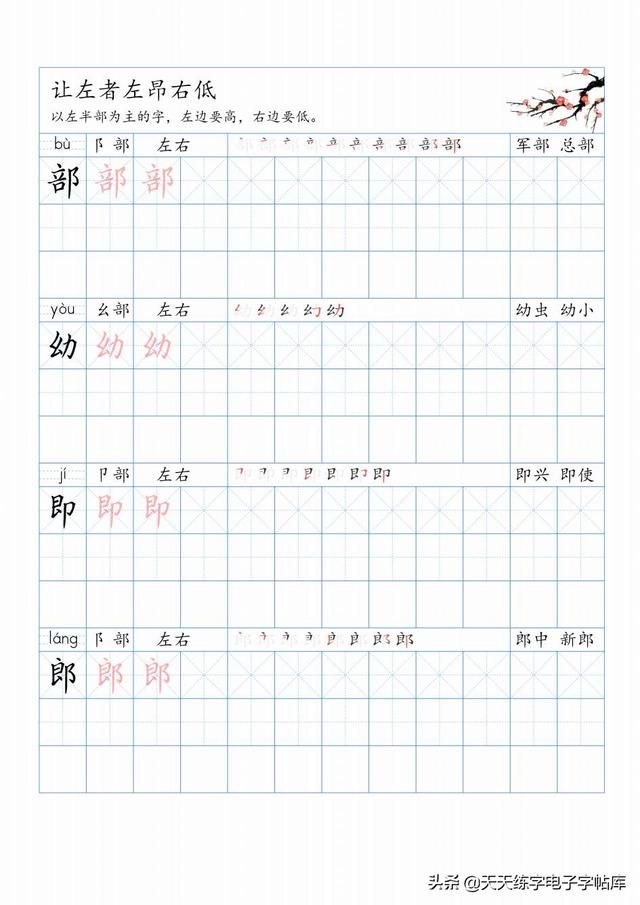 让左者左昂右低
以左半部为主的字，左边要高，右边要低。
bù 阝部 左右 军部 总部
部 部 部
yòu 幺部 左右 幼虫 幼小
幼 幼 幼
jí 卩部 左右 即兴 即使
即 即 即
láng 阝部 左右 郎中 新郎
郎 郎 郎
头条 @天天练字电子字帖库